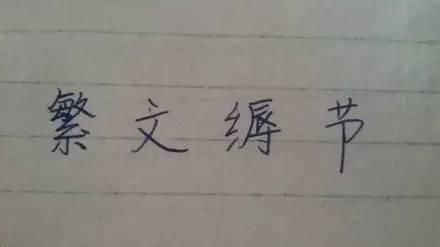 繁文缛节